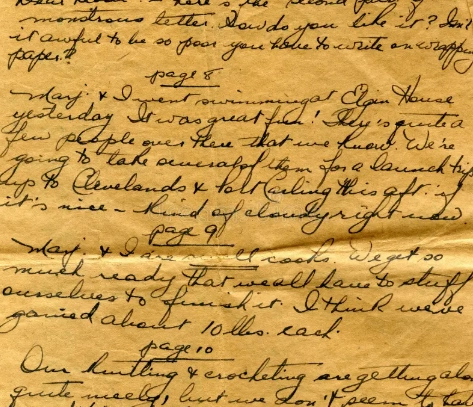 here's the second page of
monstrous letter. How do you like it? Isn't
it awful to be so poor you have to write on wrapping
paper."
page 8
Marj. & I went swimming at Elgin House
yesterday It was great fun! They's quite a
few people over there that we know. We're
going to take several of them for a launch trip
up to Clevelands & Port Carling this aft. if
it's nice - kind of cloudy right now
page 9
Marj. & I are cooks. We get so
much ready that we all have to stuff
ourselves to finish it. I think we've
gained about 10 lbs. each.
page 10
Our knitting & crocheting are getting alo
quite nicely, but we don't seem to ha